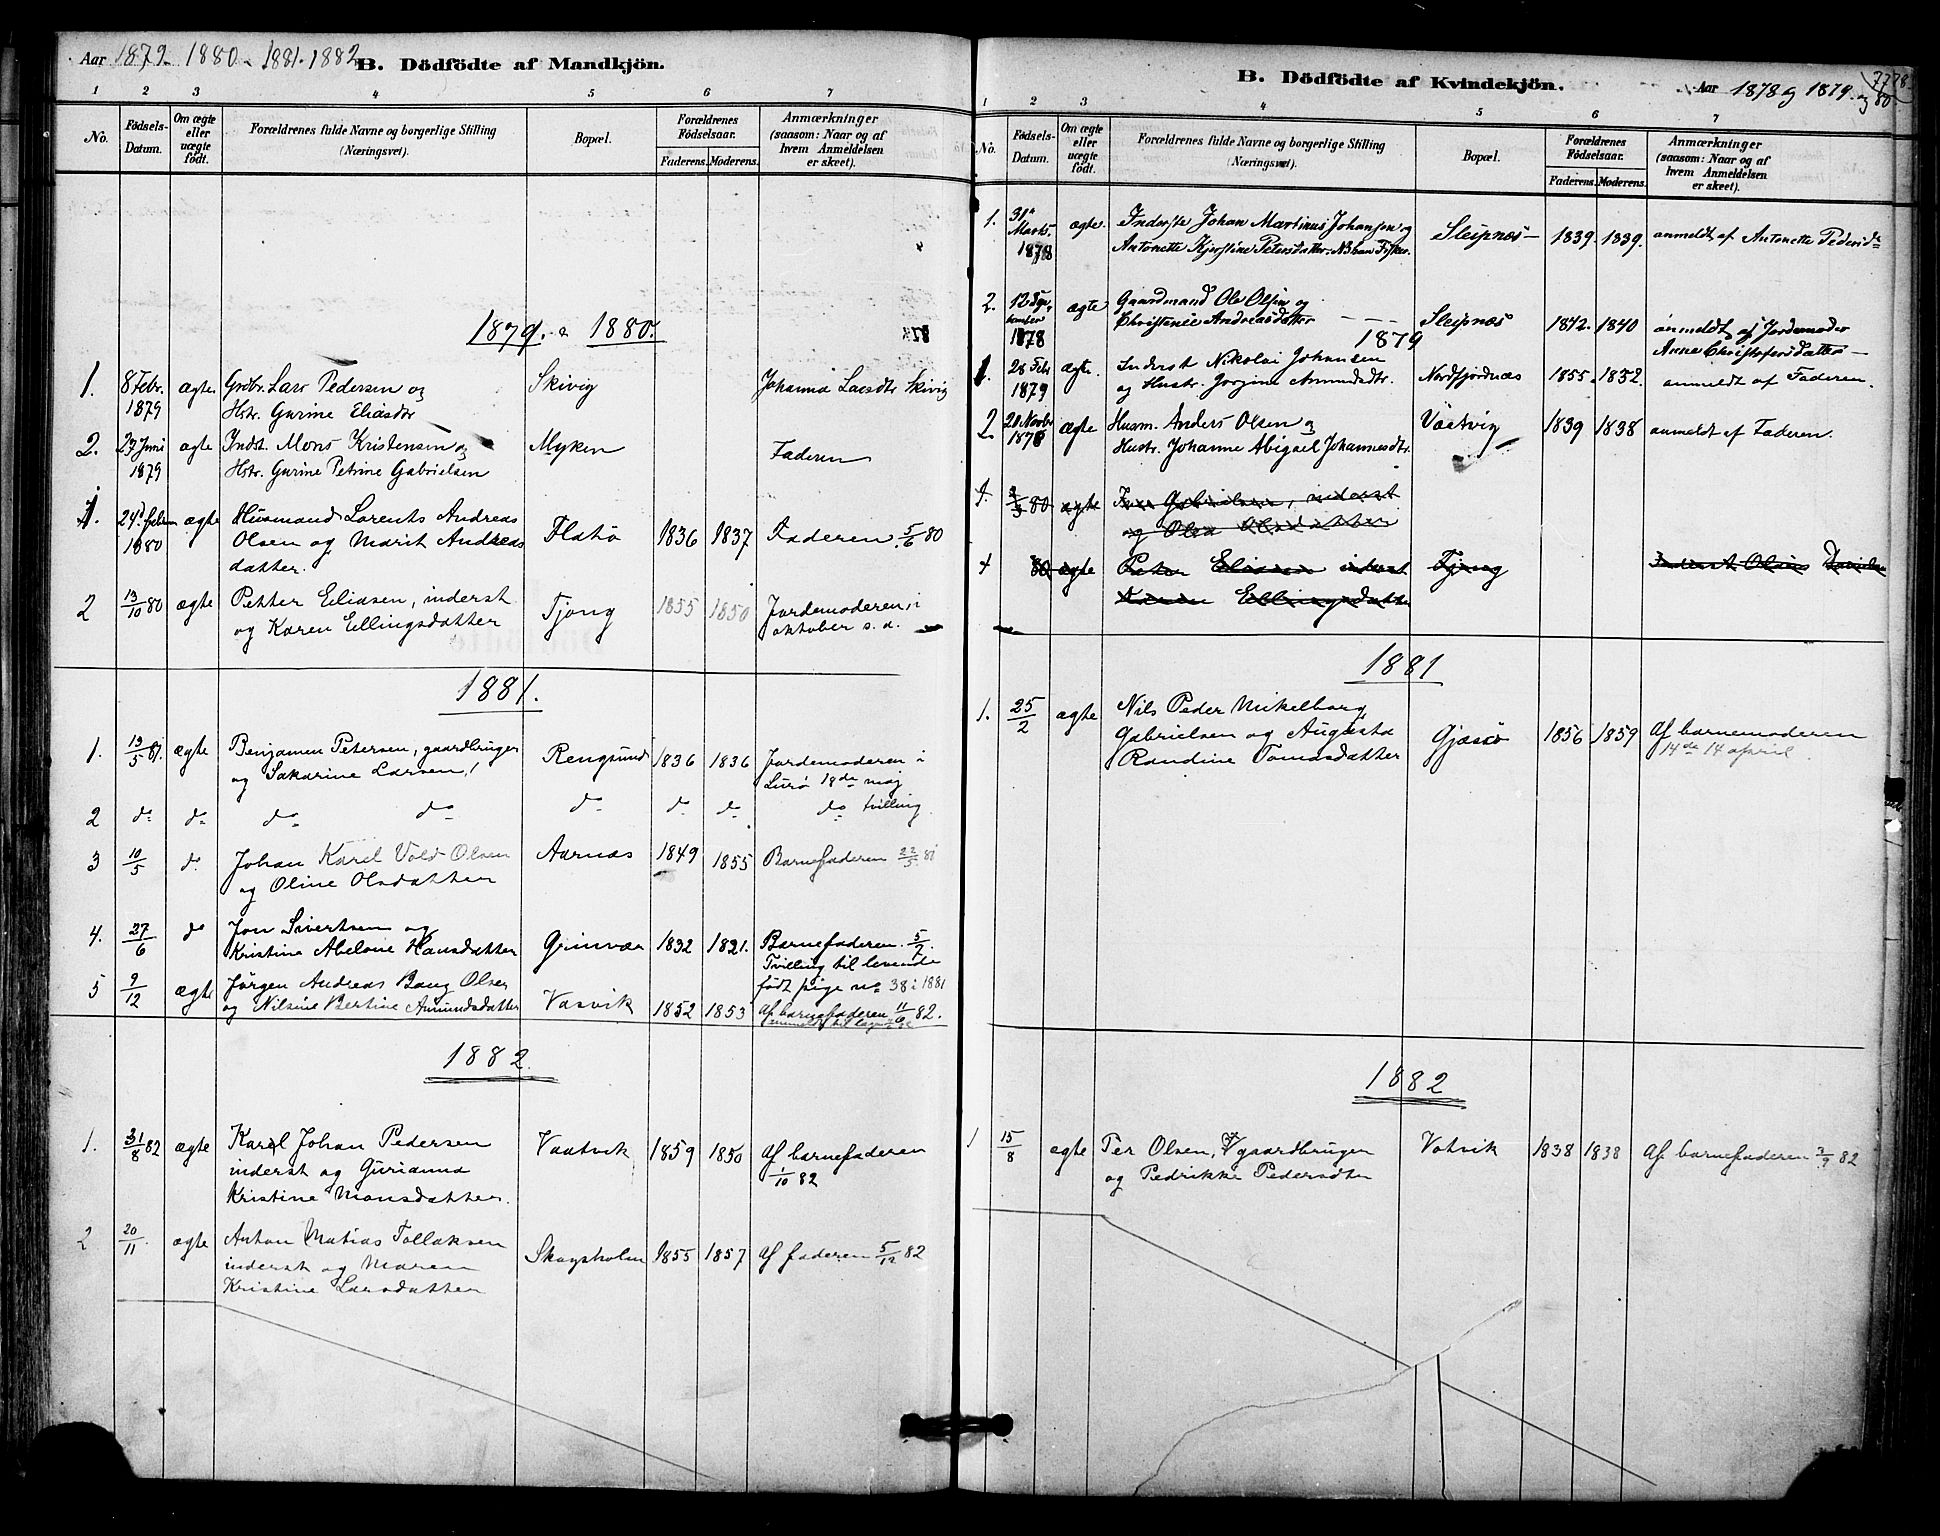 Aar 1879 - 1880 - 1881. 1882
B. Dödfödte af Mandkjön.
1 2 3 4 5 6 7
No. Fødsels-Datum. Om ægte eller uægte født. Forældrenes fulde Navne og borgerlige Stilling (Næringsvei). Bopæl. Forældrenes Fødselsaar. Faderens. Moderens. Anmærkninger (saasom: Naar og af hvem Anmeldelsen er skeet).
1879. & 1880.
1. 8 Febr. 1879 ægte Grdbr. Lars Pedersen og Skivig Johanna Larsdtr Skivig
Hstr. Gurine Eliasdtr
2. 23 Juni 1879 ægte Indst. Mons Kristensen og Myken Faderen
Hstr. Gurine Petrine Gabrielsen
1. 24de febru 1880 ægte Husmand Lorents Andreas
Olsen og Marit Andreas Flatø 1836 1837 Faderen 5/6 80
datter.
2 13/10 80 ægte Petter Eliasen, inderst Tjong 1855 1850 Jordemoderen i
og Karen Ellingsdatter oktober s. a.
1881.
1. 13/5 81. ægte Benjamen Petersen, gaardbruger Rengsund 1836 1836 Jordemoderen i
og Sakarine Larsen, Lurø 18de maj
2 do do do do do do do do tvilling
3 10/5 do Johan Karel Vold Olsen Aarnæs 1849 1855 Barnefaderen 22/5 81
og Oline Olsdatter
4. 27/6 do Jon Sivertsen og
Kristine Abelone Hansdatter Grimvær 1832 1821. Barnefaderen. 5/7.
Tvilling til levende
født pige no 38 i 1881
5 9/12 ægte Jørgen Andreas Bang Olsen
og Nilsine Bertine Amundsdatter Vasvik 1852 1853 Af barnefaderen 11/6 82.
1882.
1. 31/8 82 ægte Karel Johan Pedersen Vaatvik 1859 1850 Af barnefaderen
inderst og Gurianna 1/10 82
Kristine Monsdatter.
2 20/11. ægte Anton Matias Tollaksen
inderst og Maren Skogsholm 1855 1857 Af faderen 5/12 82
Kristine Larsdatter
B. Dödfödte af Kvindekjön.
Aar 1878 og 1879. og 80
1 2 3 4 5 6 7
No. Fødsels-Datum. Om ægte eller uægte født. Forældrenes fulde Navne og borgerlige Stilling (Næringsvei). Bopæl. Forældrenes Fødselsaar. Faderens. Moderens. Anmærkninger (saasom: Naar og af hvem Anmeldelsen er skeet).
1. 31te Marts 1878 ægte Inderste Johan Martinus Johansen og Sleipnæs - 1839 1839. anmeldt af Antonette Pedersd.
Antonette Kjerstine Petersdatter.
2. 12 September 1878 ægte Gaardmand Ole Olsen og
Christense Andreasdatter Sleipnæs 1842. 1840 anmeldt af Jordemoder
Anne Christofersdatter -
1879
1. 28 Feb 1879 ægte. Inderst Nikolai Johansen
og Hustr. Jorgine Amundsdtr. Nordfjordnæs 1855. 1852. anmeldt af Faderen.
2 20 Novbr 1878 ægte Husm. Anders Olsen og Vaatvig 1839 1838 anmeldt af Faderen.
Hustr. Johanne Abigael Johannesdtr.
1. 2/3 80 ægte Iver Gabrielsen, inderst
og Olea Olsdatter
1 80 ægte Peter Eliasen inderst Tjong Inderst Olaus Danielsen
Karen Ellingsdatter
1881
1. 25/2 ægte Nils Peder Mikelborg
Gabrielsen og Augusta Gjæsø 1856 1859 Af barnemoderen
Randine Tomasdatter 14de 14 april.
1882
1 15/8 ægte Per Olsen, gaardbruger Votvik 1838 1838 Af barnefaderen 3/9 82
og Pedrikke Pedersdtr